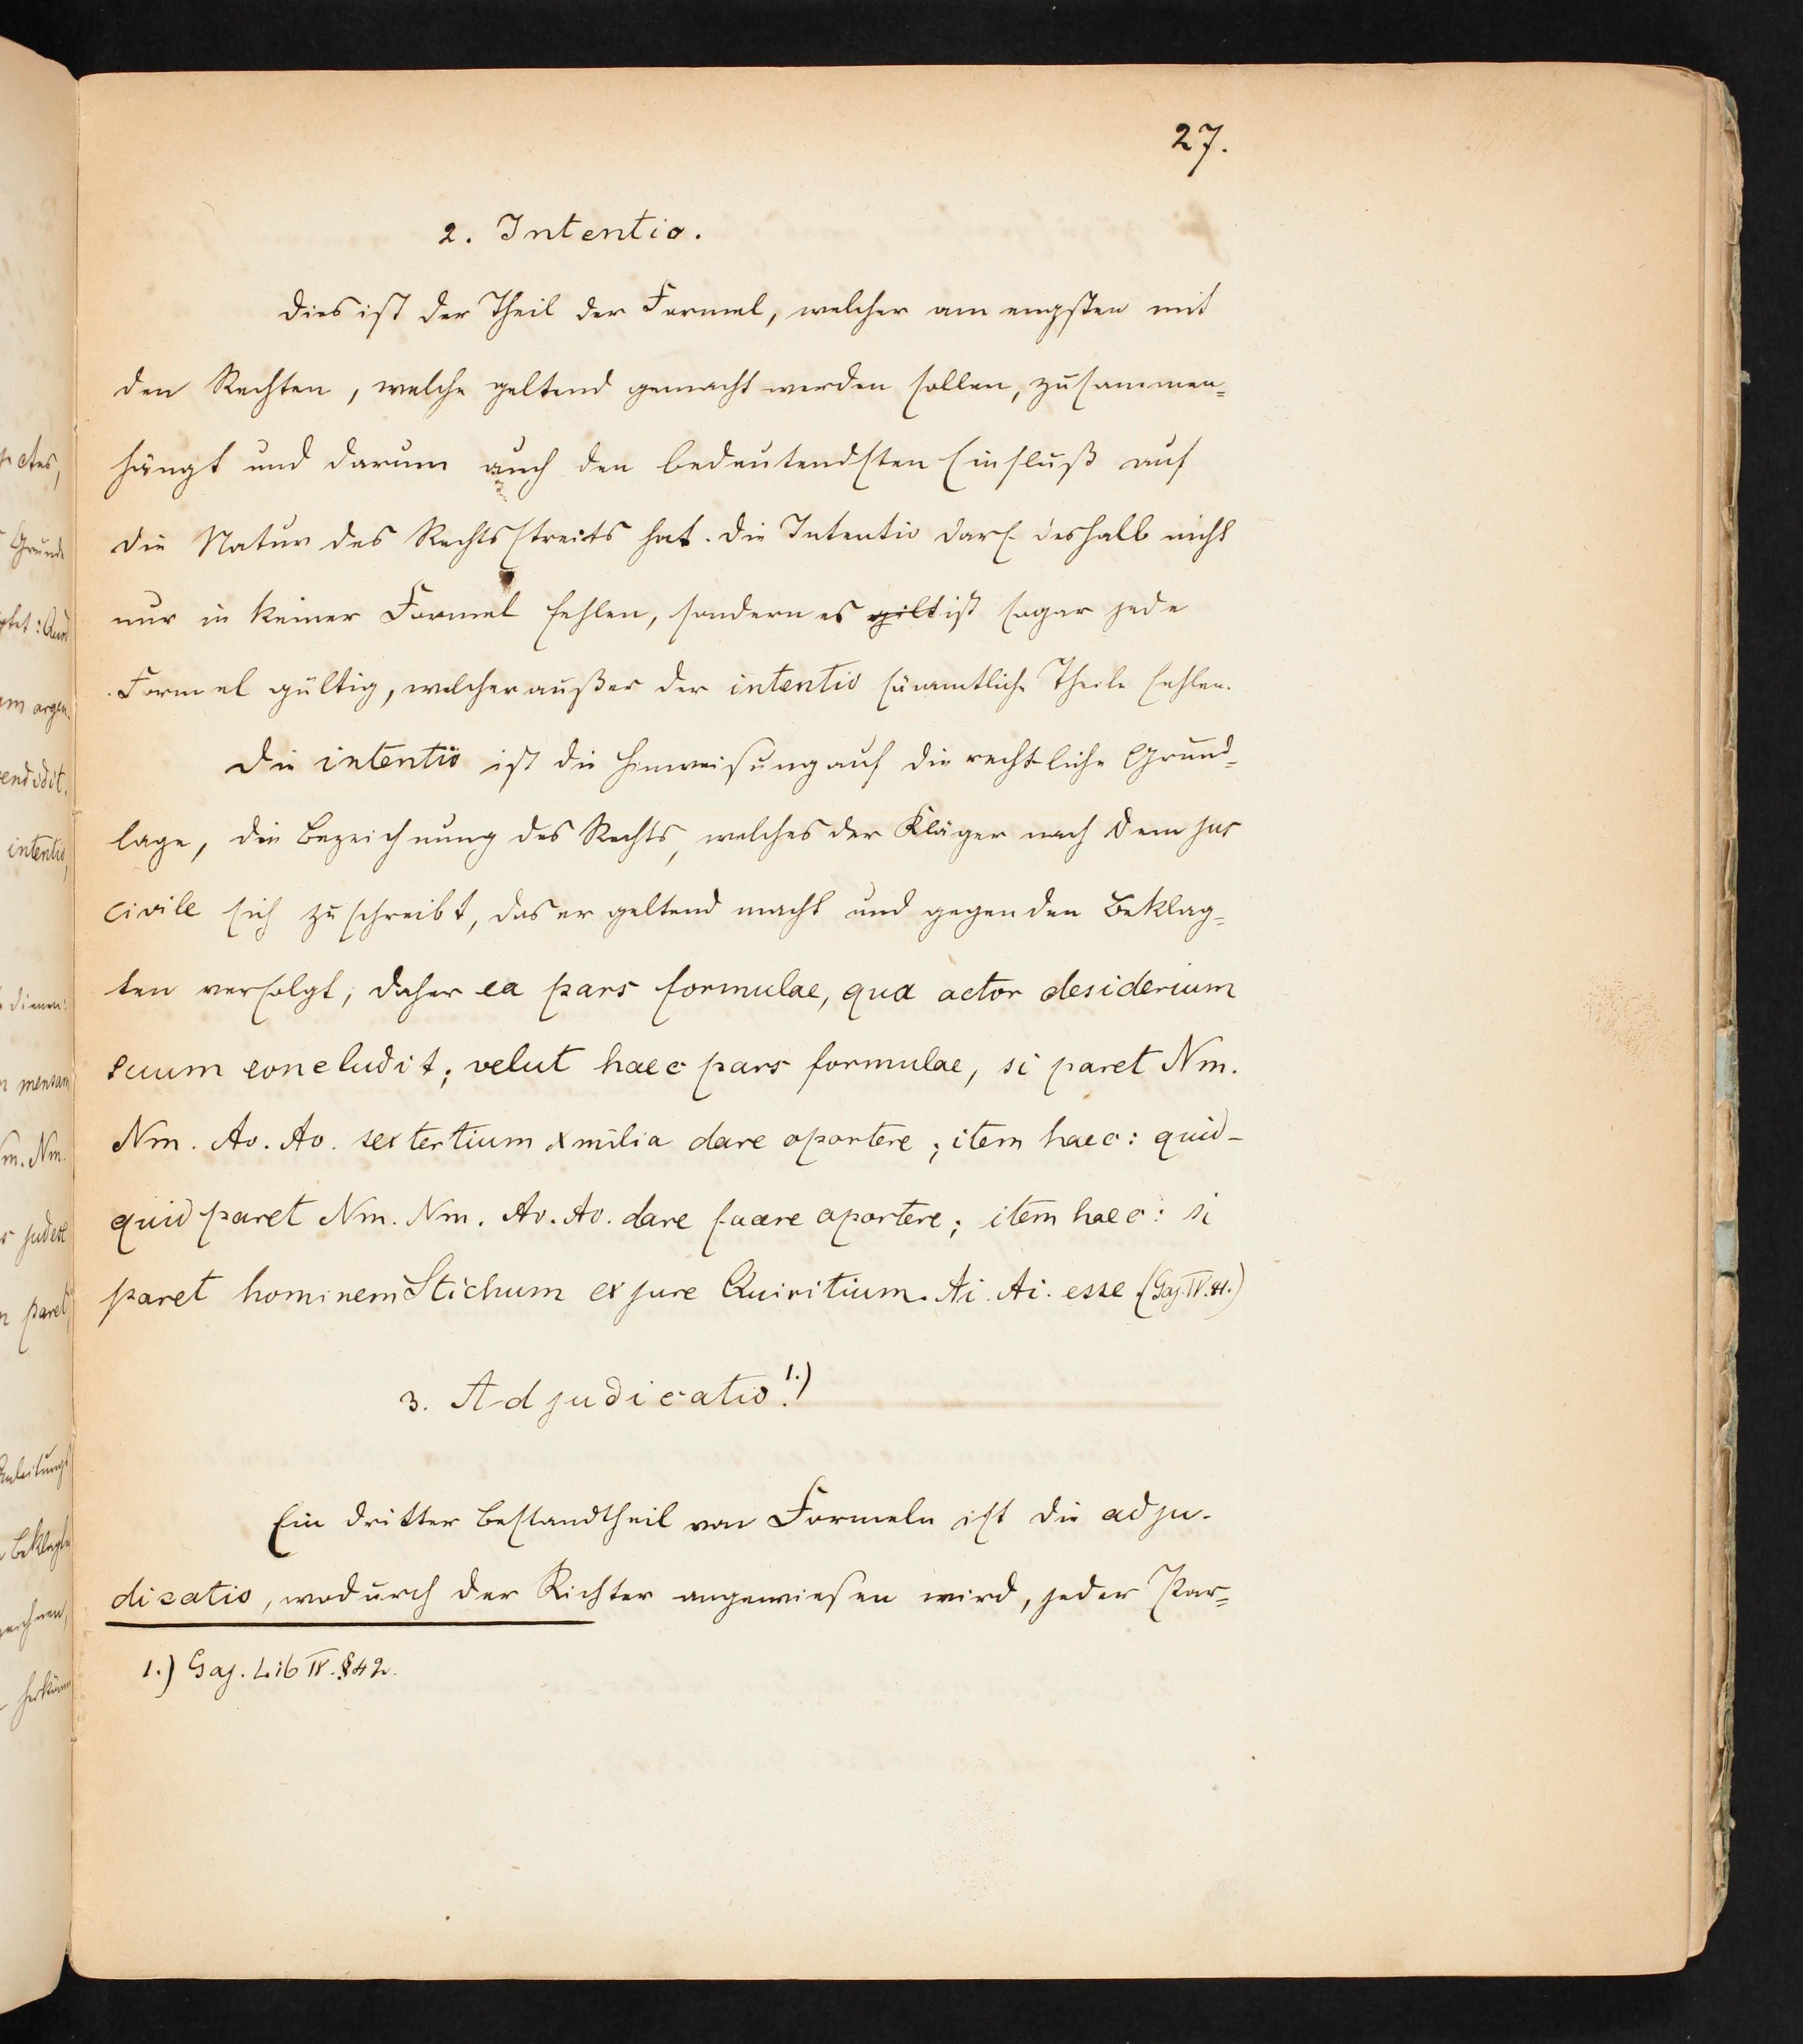 27.
2. Intentio.
Dies ist der Theil der Formel, welcher am engsten mit
den Rechten, welche geltend gemacht werden sollen, zusammen=
hängt und darum auch den bedeutendsten Einfluß auf
die Natur des Rechtsstreits hat. Die Intentio darf deshalb nicht
nur in keiner Formel fehlen, sondern es gilt ist sogar jede
Formel gültig, welcher außer der intentio sämmtliche Theile fehlen.
Die intentio ist die Hinweisung auf die rechtliche Grund=
lage, die Bezeichnung des Rechts, welches der Kläger nach dem jus
civile sich zuschreibt, das er geltend macht und gegen den Beklag=
ten verfolgt; daher ea pars formulae, qua actor desiderium
suum concludit; velut haec pars formulae, si paret Nm.
Nm. Ao. Ao. sextertium x milia dare oportere; item haec: quid-
quid paret Nm. Nm. Ao. Ao. dare facere oportere; item haec: si
paret hominem Stichum ex jure Quiritium. Ai. Ai. esse. (Gaj. IV. 41.)
3. Adjudicatio. 1.)
Ein dritter Bestandtheil von Formeln ist die adju-
dicatio, wodurch der Richter angewiesen wird, jeder Par=
1.) Gaj. Lib IV. § 42.
pctes,
Grunde
intentio,
mensam
m. Nm.
judex
paret,